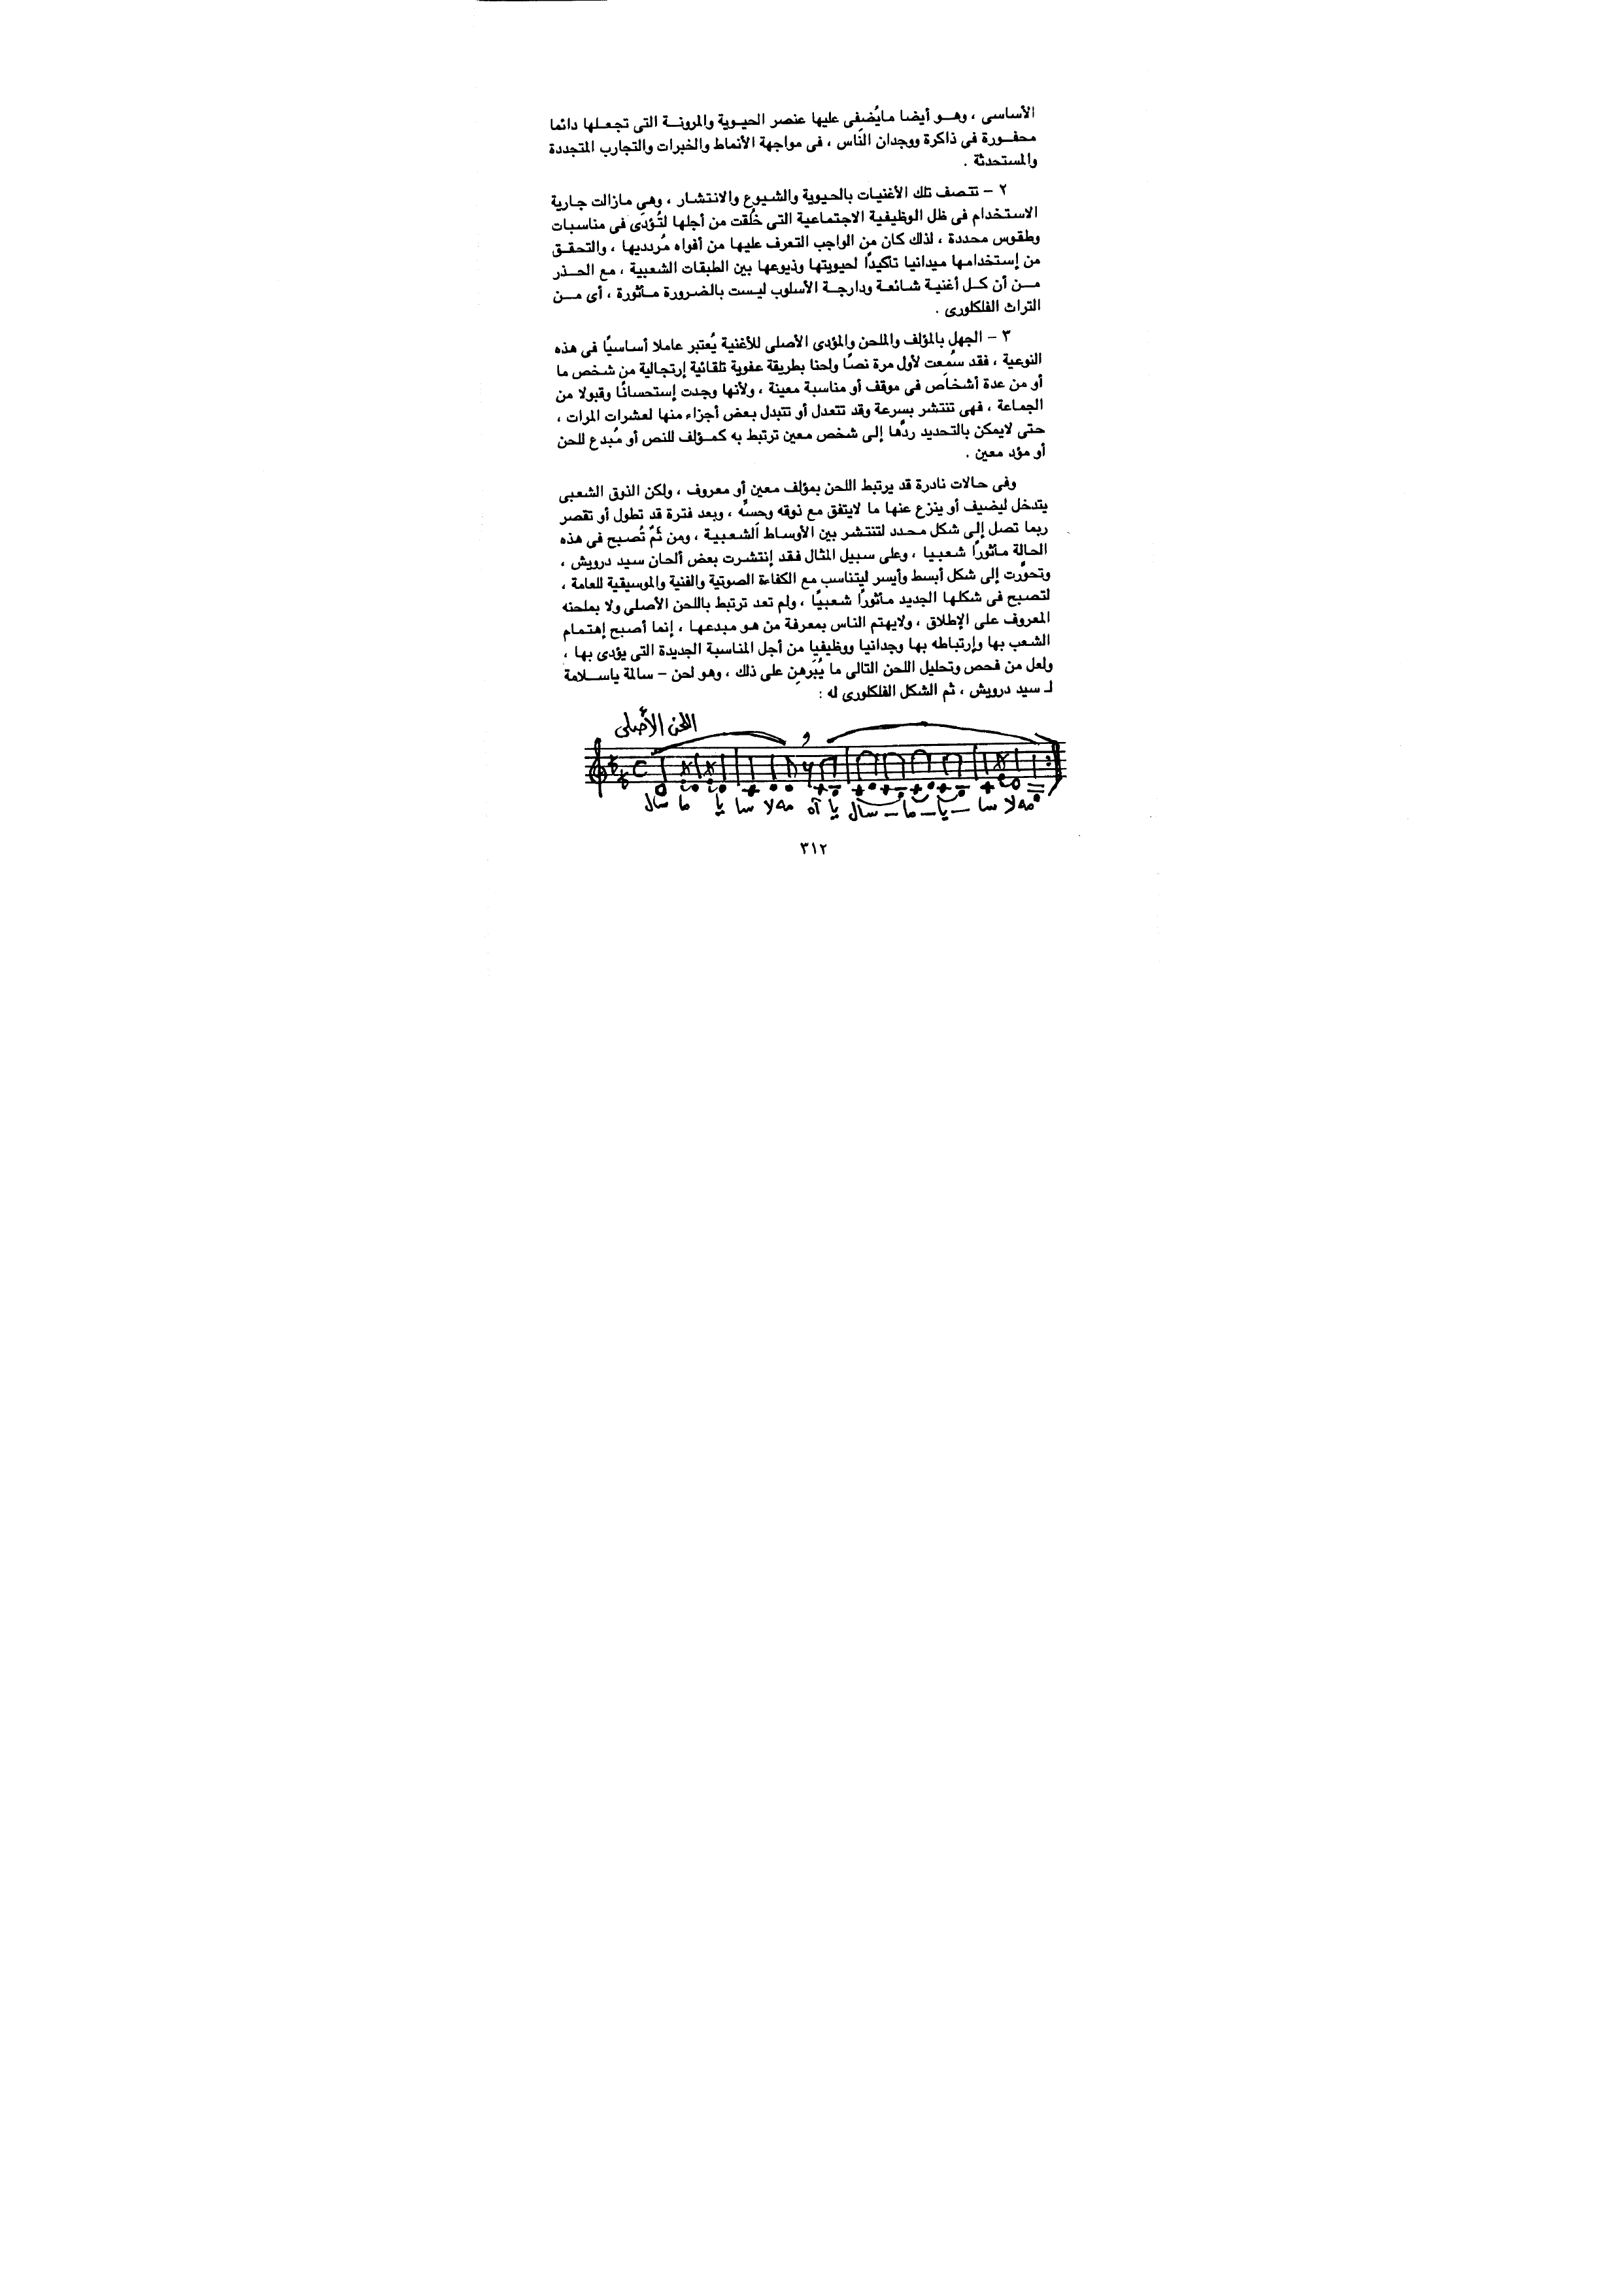 الأساسى ، وهـو أيضا مايُضفى عليها عنصر الحيوية والمرونـة التى تجعلها دائما
محفورة فى ذاكرة ووجدان الناس ، فى مواجهة الأنماط والخبرات والتجارب المتجددة
والمستحدثة .
٢ – تتصف تلك الأغنيات بالحيوية والشيوع والانتشار ، وهى مازالت جارية
الاستخدام فى ظل الوظيفية الاجتماعية التى خُلقت من أجلها لتُؤدَى فى مناسبات
وطقوس محددة ، لذلك كان من الواجب التعرف عليها من أفواه مُردديها ، والتحقق
من إستخدامها ميدانيا تاكيدًا لحيويتها وذيوعها بين الطبقات الشعبية ، مع الحـذر
مـن أن كـل أغنية شائعة ودارجـة الأسلوب ليست بالضرورة مـأثورة ، أى مـن
التراث الفلكلورى .
٣ – الجهل بالمؤلف والملحن والمؤدى الأصلى للأغنية يُعتبر عاملا أساسيًا فى هذه
النوعية ، فقد سُمعت لأول مرة نصًا ولحنا بطريقة عفوية تلقائية إرتجالية من شخص ما
أو من عدة أشخاص فى موقف أو مناسبة معينة ، ولأنها وجدت إستحسانًا وقبولا من
الجماعة ، فهى تنتشر بسرعة وقد تتعدل أو تتبدل بعض أجزاء منها لعشرات المرات ،
حتى لايمكن بالتحديد ردَّها إلى شخص معين ترتبط به كمـؤلف للنص أو مُبدع للحن
أو مؤد معين .
وفى حالات نادرة قد يرتبط اللحن بمؤلف معين أو معروف ، ولكن الذوق الشعبى
يتدخل ليضيف أو ينزع عنها ما لايتفق مع ذوقه وحسِّه ، وبعد فترة قد تطول أو تقصر
ربما تصل إلى شكل محدد لتنتشر بين الأوساط الشعبية ، ومن ثَمَّ تُصبح فى هذه
الحالة مـأثورًا شعبيا ، وعلى سبيل المثال فقد إنتشرت بعض ألحان سيد درويش ،
وتحوَّرت إلى شكل أبسط وأيسر ليتناسب مع الكفاءة الصوتية والفنية والموسيقية للعامة ،
لتصبح فى شكلها الجديد مـأثورًا شعبيًا ، ولم تعد ترتبط باللحن الأصلى ولا بملحنه
المعروف على الإطلاق ، ولايهتم الناس بمعرفة من هو مبدعها ، إنما أصبح إهتمام
الشعب بها وإرتباطه بها وجدانيا ووظيفيا من أجل المناسبة الجديدة التى يؤدى بها ،
ولعل من فحص وتحليل اللحن التالى ما يُبَرهِن على ذلك ، وهو لحن – سالمة ياسـلامة
لـ سيد درويش ، ثم الشكل الفلكلورى له :
اللحن الأصلى
سال ما يا سا لا مه آه يا سال – ما – يا – سا لا مه
٣١٢